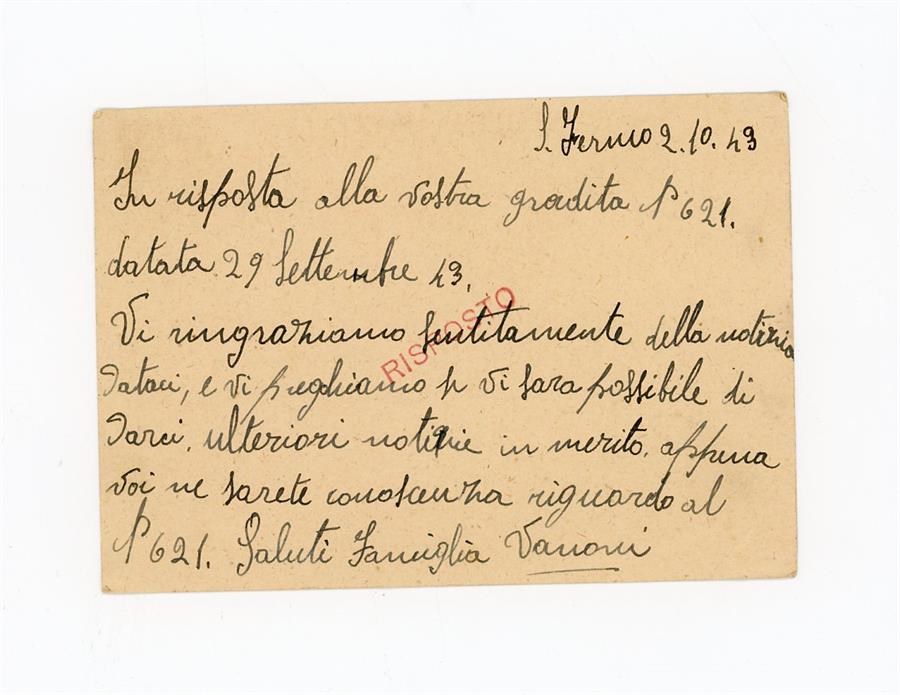 S. Fermo 2.10.43
In risposta alla vostra gradita N 621.
datata 29 Settembre 43.
Vi ringraziamo sentitamente della notizia
dataci, e vi preghiamo se vi sara possibile di
darci ulteriori notizie in merito. appena
voi ne sarete conoscenza riguardo al
N 621. Saluti Famiglia Vanoni
RISPOSTO